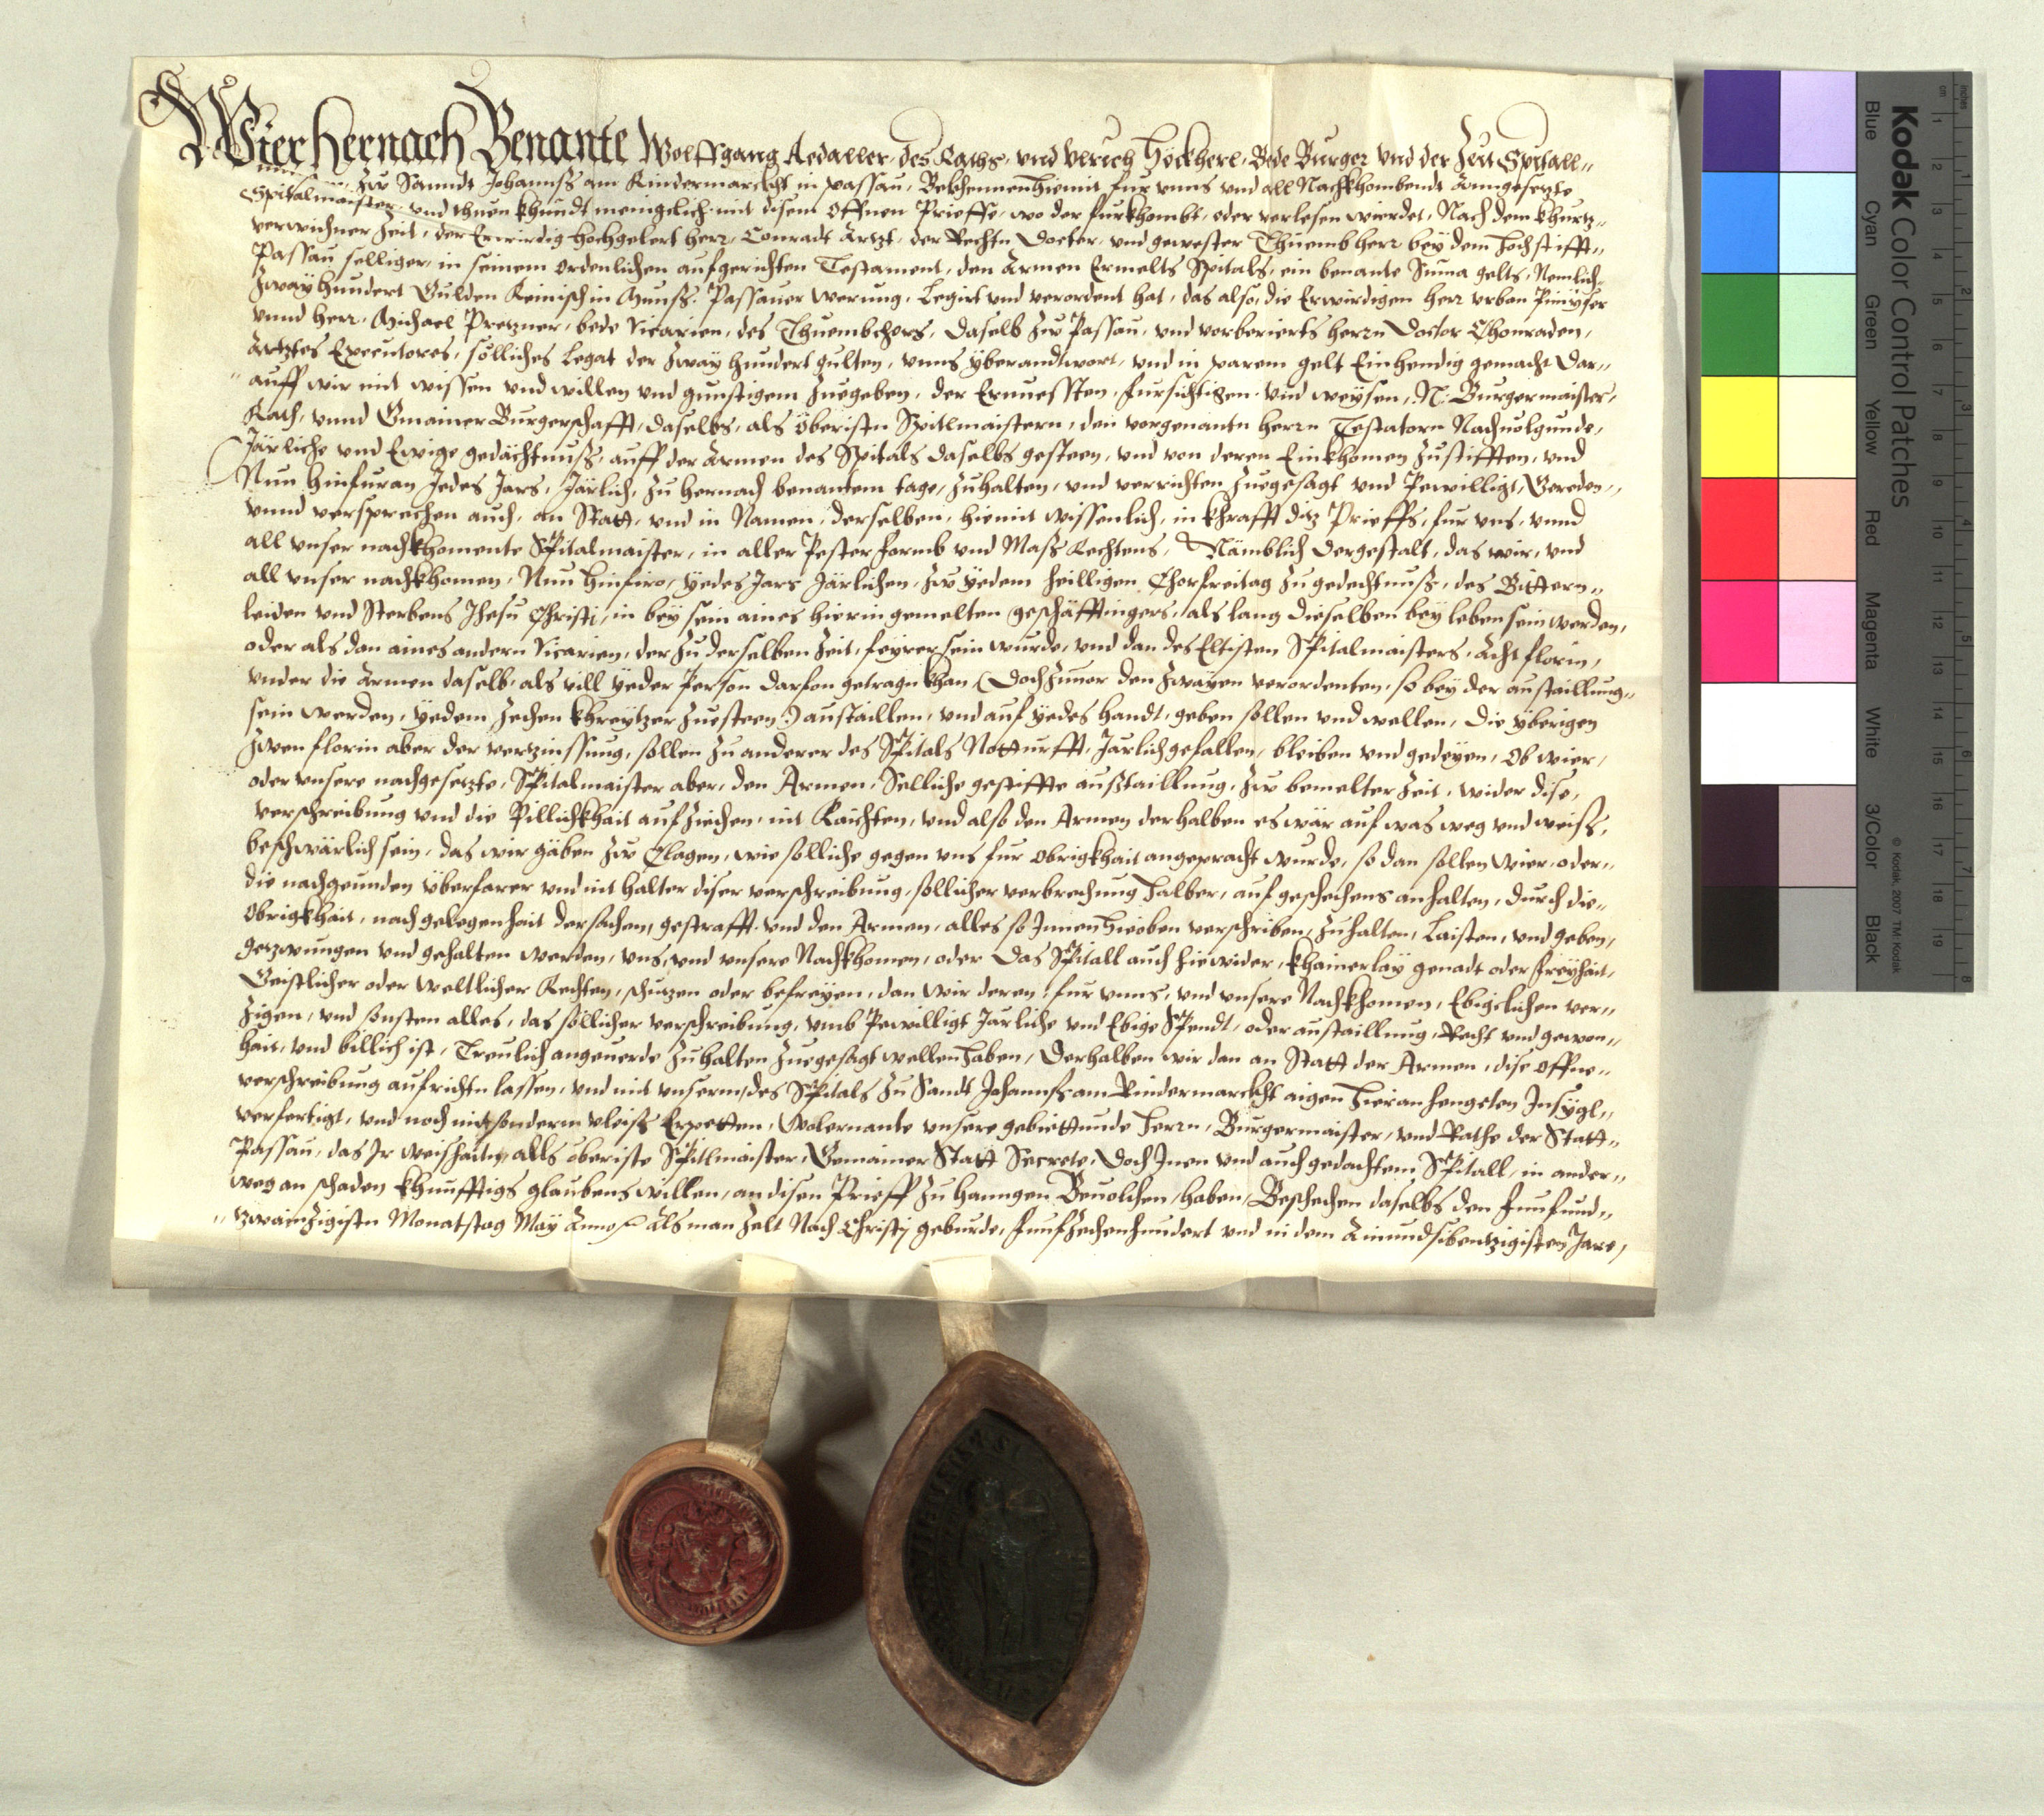 Wier hernach Benante Wolffgang Aedaller, des Raths, vnd Vlrich Höckherl, Bede Burger vnd der Zeit Spitall„
maister, Zw Sanndt Johannß am Rindermarckht in Passau, Bekhennen hiemit fur vnns vnd all Nachkhombendt Anngesetzte
Spitalmaister, vnd thuen khundt menigclich mit disem offnen Prieffe, wo der furkhombt, oder verlesen wierdet, Nach dem khurtz„
verwichner Zeit, der Erwirdig Hochgelert herr, Conradt Artzt, der Rechtn Doctor, vnd gewester Thuemb herr bey dem Hochstifft„
Passau selliger, in seinem ordenlichen aufgerichten Testament, den Armen Ermelts Spitals, ein benante Suma gelts, Nemlich
Zwayhundert Gulden Reinisch in Munss. Passauer werung, Legirt vnd verordent hat, das also, die Erwirdigen herr Vrban
vnnd herr, Michael Pretzner, bede Vicarien, des Thuembchors, daselb Zw Passau, vnd vorberierts herrn Doctor Chonraden,
Artztes Executores, sölliches Legat der Zway hundert gulten, vnns yberandtwort, vnd in parem gelt Einhendig gemacht Dar„
„auff wir mit wissen vnd willen vnd gunstigem Zuegeben, der Ernuessten, fursichtigen vnd weysen, N: Burgermaister,
Rath, vnnd Gmainer Burgerschafft, daselbs, als Oberistn Spitlmaistern, den vorgenantn herrn Testatorn Nachuolgunde,
Järliche vnd Ewige gedächtnuß, auff der Armen des Spitals daselbs gesteen, vnd von deren Einkhomen Zustifften, vnd
Nun hinfuran Jedes Jars, Järlich, Zu hernach benantem tage, Zuhalten, vnd verrichten Zuegesagt vnd Pewilligt, Gereden„
vnnd versprechen auch, an Statt, vnd in Namen, derselben, hiemit wissenlich, in khrafft ditz Prieffs, fur vns, vnnd
all vnser nachkhomente Spitalmaister, in aller Pester Formb vnd Mass Rechtens, Nämblich dergestalt, das wir, vnd
all vnser nachkhomen, Nun hinfiro, yedes Jars Järlichen, Zw yedem heilligen Chorfreitag Zu gedechtnuß, des Bittern„
leiden vnd Sterbens Jhesu Christi, in bey sein aines hierin gemelten geschäfftingers, als lang dieselben bey leben sein werden,
oder als dan aines andern Vicarien, der Zu derselben Zeit, feyrer sein wurde, vnd dan des Eltisten Spitalmaisters, Acht florin,
vnder die Armen daselb, als vill yeder Person darfon getragn khan (Doch Zuuor den Zwayen verordenten, so bey der austaillung„
sein werden, yedem Zechen khreytzer Zuesteen:) austaillen, vnd auf yedes handt, geben sollen vnd wellen, Die yberigen
Zwen florin aber der vertzinssung, sollen Zu anderer des Spitals Notturfft, Järlich gefallen, bleiben vnd gedeyen, Ob wier,
oder vnsere nachgesetzte, Spitalmaister aber, den Armen, Selliche gestiffte außtaillung, Zw bemelter Zeit, wider dise,
verschreibung vnd die Pillichkhait auf Ziechen, nit Raichten, vnd also den Armen derhalben es wär auf was weg vnd weiß,
beschwärlich sein, das wir gäben Zw Clagen, wie solliche gegen vns fur Obrigkhait angepracht wurde, so dan sollen wier, oder„
die nachgeunden Überfarer vnd nit halter diser verschreibung, söllicher verbrechung halber, auf geschechens anhalten, durch die„
Obrigkhait, nach gelegenhait der sachen, gestrafft vnd den Armen, alles so Innen hieoben verschriben, Zuhalten, Laisten, vnd geben,
getzwungen vnd gehalten werden, vns, vnd vnsere Nachkhomen, oder das Spitall auch hiewider, khainerlay genadt oder freyhait,
Geistlicher oder Weltlicher Rechten, schutzen oder befreyen, dan wir deren, fur vnns, vnd vnsere Nachkhomen, Ebigclichen ver„
Zigen, vnd sonsten alles, das söllicher verschreibung, vmb Pewilligt Järliche vnd Ebige Spendt, oder austaillung, Recht vnd gewon„
hait, vnd billich ist, Treulich angeuerde Zuhalten Zuegesagt wellen haben, Derhalben wir dan an Statt der Armen, dise offne„
verschreibung aufrichtn lassen, vnd mit vnserm, des Spitals Zu Sandt Johannß am Rindermarckht aigen hieran hengeten Insygl„
verfertigt, vnd noch mit sonderm vleiß Erpetten, Wolernante vnsere gebiettunde Herrn, Burgermaister, vnd Rathe der Statt„
Passau, das Ir weishaiten alls oberiste Spitlmaister, Gemainer Statt Secrete, Doch Inen vnd auch gedachtem Spitall, in ander„
weg an schaden khunfftigs glaubens willen, an disen Prieff Zu hanngen Beuolchen, haben, Beschechen daselbs den funfund„
„tzwainzigistn Monatstag May Anno als man Zelt Nach Christj geburde, funfzechenhundert vnd in dem Ainundsibentzigisten Jare,
Kodak Color Control Patches
Blue Cyan Green Yellow Red Magenta White 3/Color Black
© Kodak, 2007 TM: Kodak
cm 1 2 3 4 5 6 7 8 9 10 11 12 13 14 15 16 17 18 19
inches 1 2 3 4 5 6 7 8